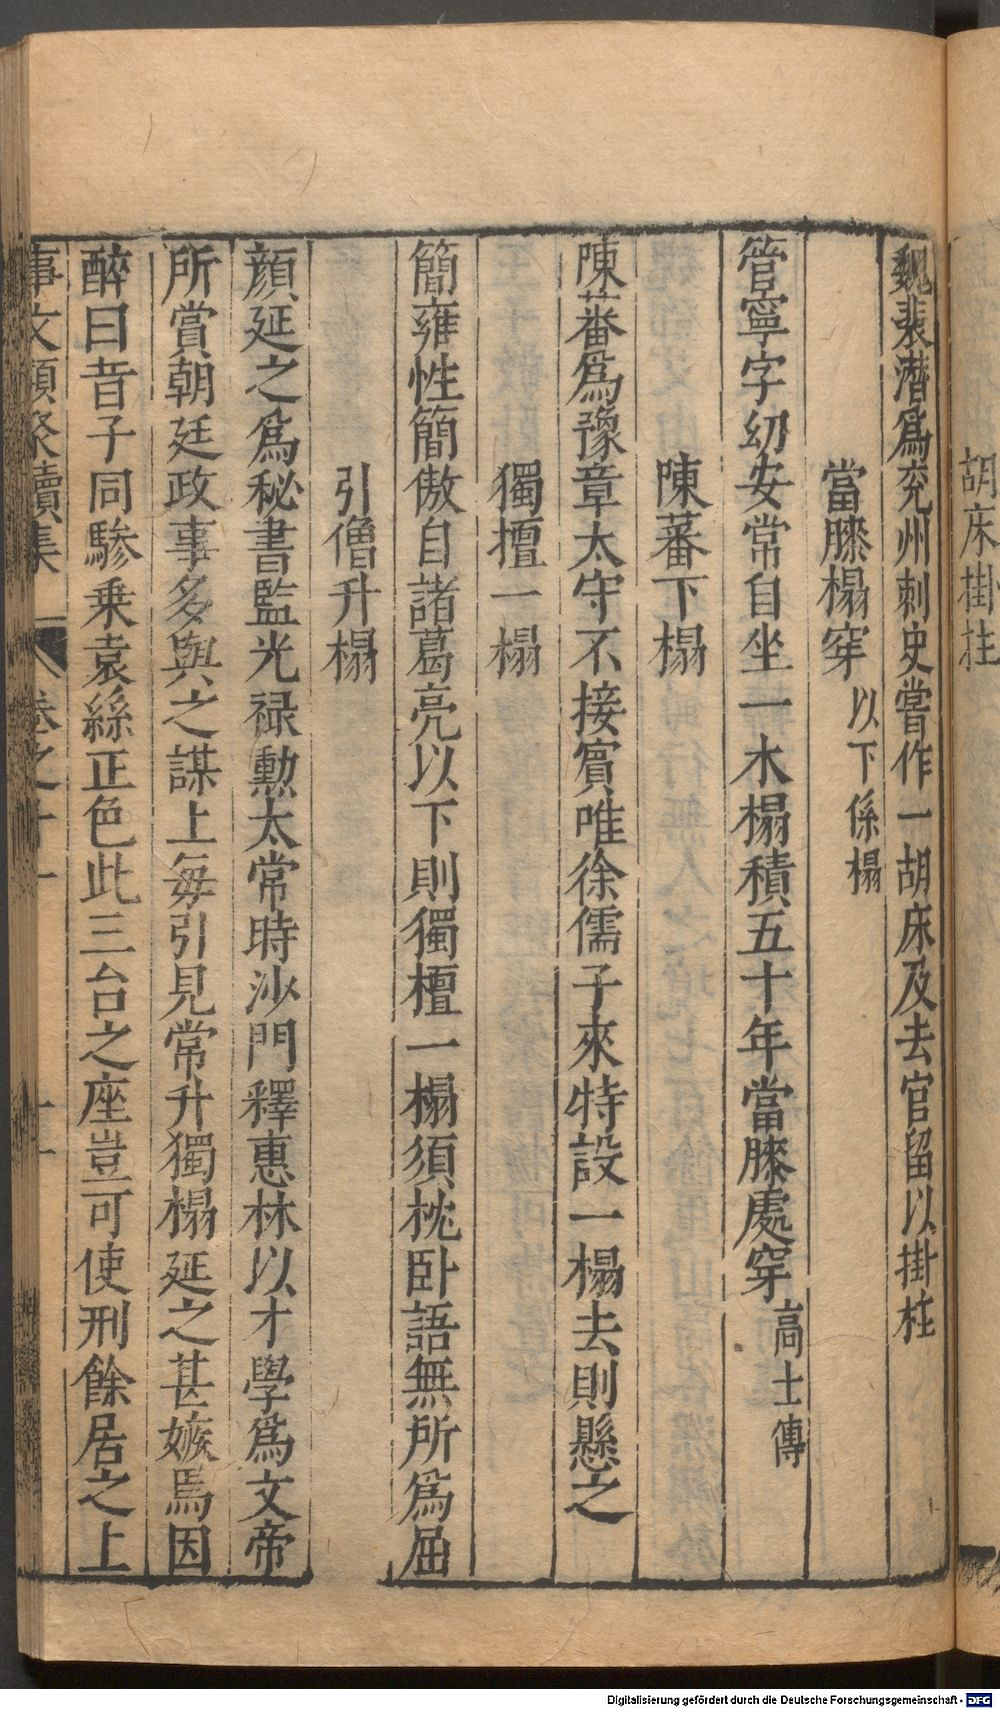 胡床掛柱
魏裴潛爲兖州刺史嘗作一胡床及去官留以掛柱
當膝榻穿 以下係榻
管寧字幼安常自坐一木榻積五十年當膝處穿 高士傳
陳蕃下榻
陳蕃爲豫章太守不接賓唯徐儒子來特設一榻去則懸之
獨擅一榻
簡雍性簡傲自諸葛亮以下則獨擅一榻須枕卧語無所爲屈
引僧升榻
顔延之爲秘書監光禄勲太常時沙門釋惠林以才學爲文帝
所賞朝廷政事多與之謀上每引見常升獨榻延之甚嫉焉因
醉曰昔子同驂乗袁絲正色此三台之座豈可使刑餘居之上
事文類聚續集 卷之十一 十一
Digitalisierung gefördert durch die Deutsche Forschungsgemeinschaft - DFG